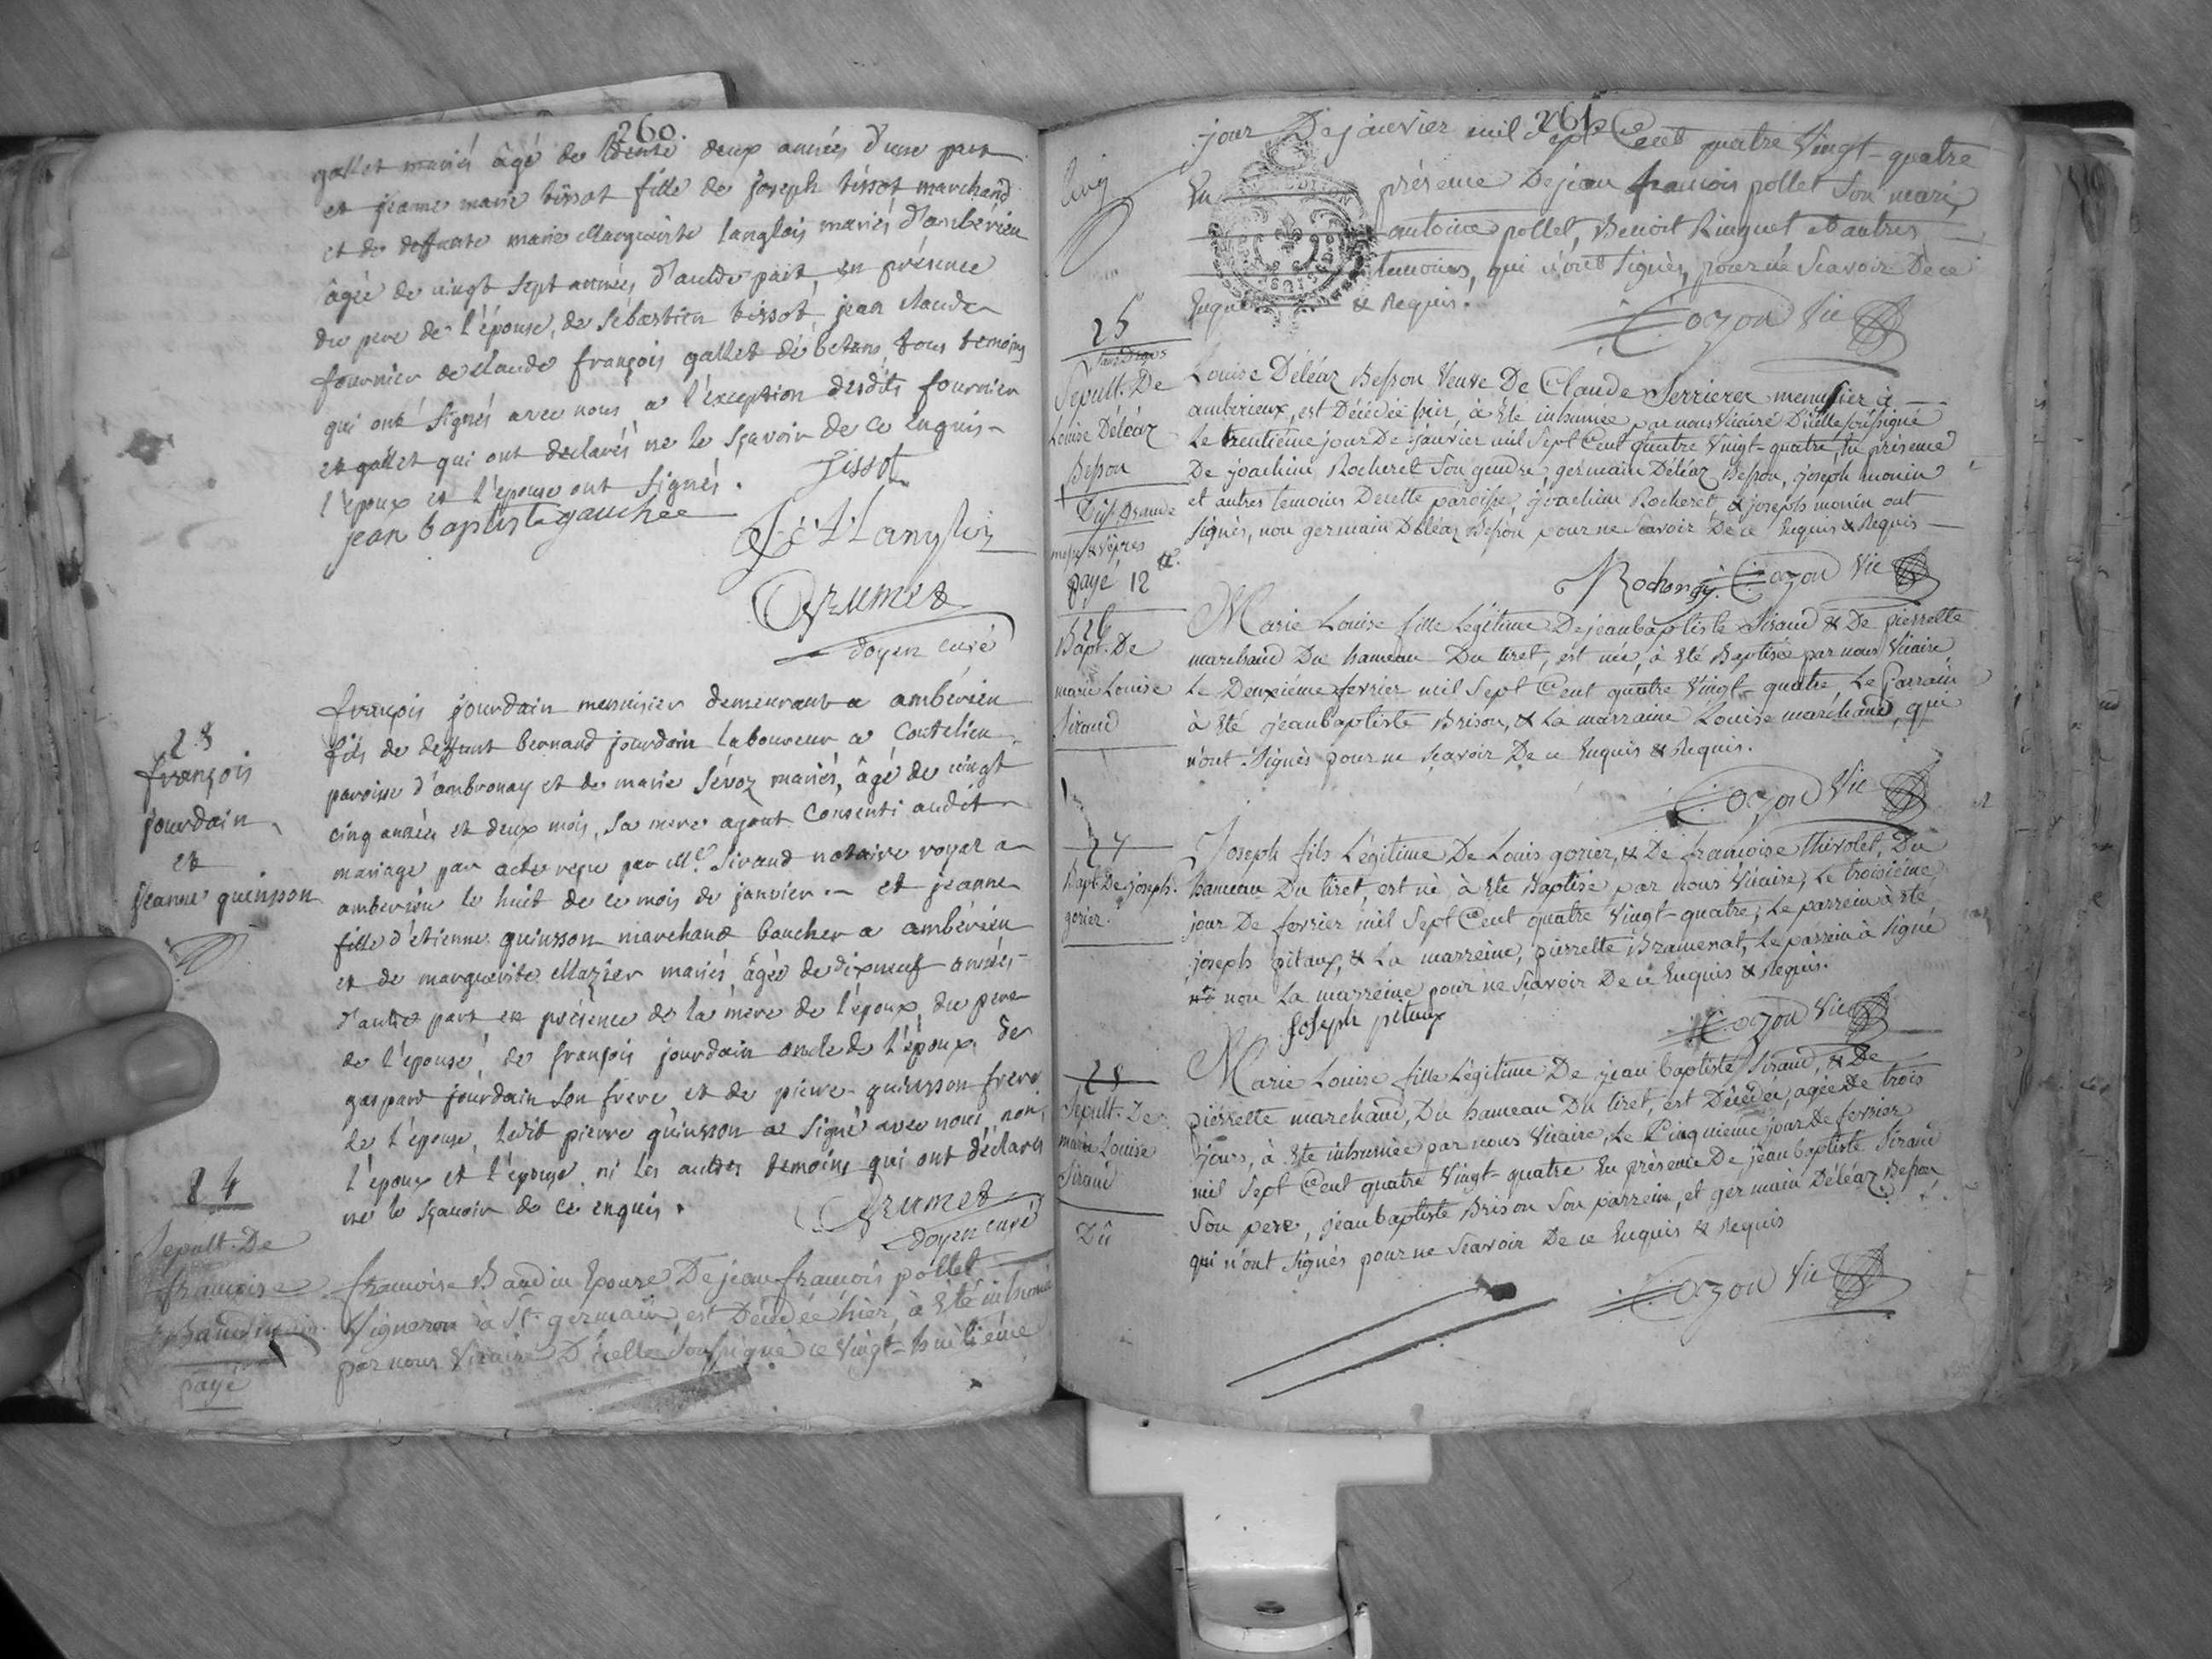 260.
gallet mariés âgé de trente deux années d'une part
et jeanne marie tissot fille de joseph tissot marchand
et de deffunte marie Marguerite langlois mariés d'ambérieu
âgée de vingt sept années d'autre part, en présence
du pere de l'épouse, de sébastien tissot, jean claude
fournier de claude françois gallet de betans, tous temoins
qui ont signés avec nous a l'exception desdits fournier
et gallet qui ont declarés ne le sçavoir de ce enquis
l'époux et l'épouse ont signés.
tissot
jean baptiste gauchee
Grumet
doyen curé
23
françois
jourdain
et
jeanne quinsson
françois jourdain menuisier demeurant a ambérieu
fils de deffunt bernard jourdain laboureur a Coutelieu
paroisse d'ambronay et de marie sévoz mariés, âgé de vingt
cinq années et deux mois, sa mere ayant Consenti audit
mariage par acte reçu par Me. Sirand notaire royal a
amberieu le huit de ce mois de janvier. et jeanne
fille d'etienne quinsson marchand boucher a ambérieu
et de marguerite Mazier mariés, âgée de dixneuf années
d'autre part en présence de la mere de l'époux, du pere
de l'épouse, de françois jourdain oncle de l'époux, de
gaspard jourdain son frere et de pierre quinsson frere
de l'épouse, ledit pierre quinsson a signé avec nous, non
l'époux et l'épouse, ni les autres temoins qui ont déclarés
ne le sçavoir de ce enquis.
Grumet
doyen curé
24
Sepult. De
francoise
baudin
payé
francoise Baudin Epouse De jean françois pollet
Vigneron à St. germain, est Décédée hier, à Eté inhumée
par nous Vicaire D'icelle soussigné ce Vingt-huitième
261
jour De janvier mil Sept Cent quatre Vingt-quatre
En présence De jean francois pollet Son mari,
antoine pollet, Benoit Ringuet et autres
temoins, qui n'ont signés, pour ne Scavoir De ce
Enquis & Requis.
Cozon Vic
25
Sepult. De
Louise Déléaz
Besson
payé 12
Louise Déléaz Besson Veuve De Claude Serrierer menusier à
amberieux, est Décédée hier, à Eté inhumée par nous Vicaire D'icelle soussigné
Le trentième jour De janvier mil Sept Cent quatre Vingt-quatre, En présence
De joachim Rocheret Son gendre, germain Déléaz Besson, joseph monin
et autres temoins De cette paroisse, joachim Rocheret, & joseph monin ont
signés, non germain Déléaz Besson pour ne Scavoir De ce Enquis & Requis
Cozon Vic
26
Bapt. De
marie Louise
Siraud
Marie Louise fille Légitime De jean baptiste Siraud & De pierrette
marchand Du hameau Du tiret, est née, à Eté Baptisée par nous Vicaire
Le Deuxième fevrier mil Sept Cent quatre Vingt-quatre, Le Parrain
à Eté jean baptiste Brison, & La marraine Louise marchand, qui
n'ont Signés pour ne Scavoir De ce Enquis & Requis.
Cozon Vic
27
Bapt. De joseph
gorier
Joseph fils Légitime De Louis gorier, & De francoise thivolet, Du
hameau Du tiret, est né à Eté Baptisé par nous Vicaire, Le troisième
jour De fevrier mil Sept Cent quatre Vingt-quatre; Le parrein à Eté
joseph pitaux, & La marreine, pierrette Bramenat, Le parrein à signé
non La marreine pour ne Scavoir De ce Enquis & Requis.
joseph pitaux
Cozon Vic
28
Sepult. De
marie Louise
Siraud
Dû
Marie Louise fille Légitime De jean baptiste Siraud, & De
pierrette marchand, Du hameau Du tiret, est Décédée, agée de trois
jours, à Eté inhumée par nous Vicaire, Le Cinquieme jour De fevrier
mil Sept Cent quatre Vingt-quatre En présence De jean baptiste Siraud
Son pere, jean baptiste Brison Son parrein, et germain Déléaz Besson,
qui n'ont signés pour ne Scavoir De ce Enquis & Requis
Cozon Vic